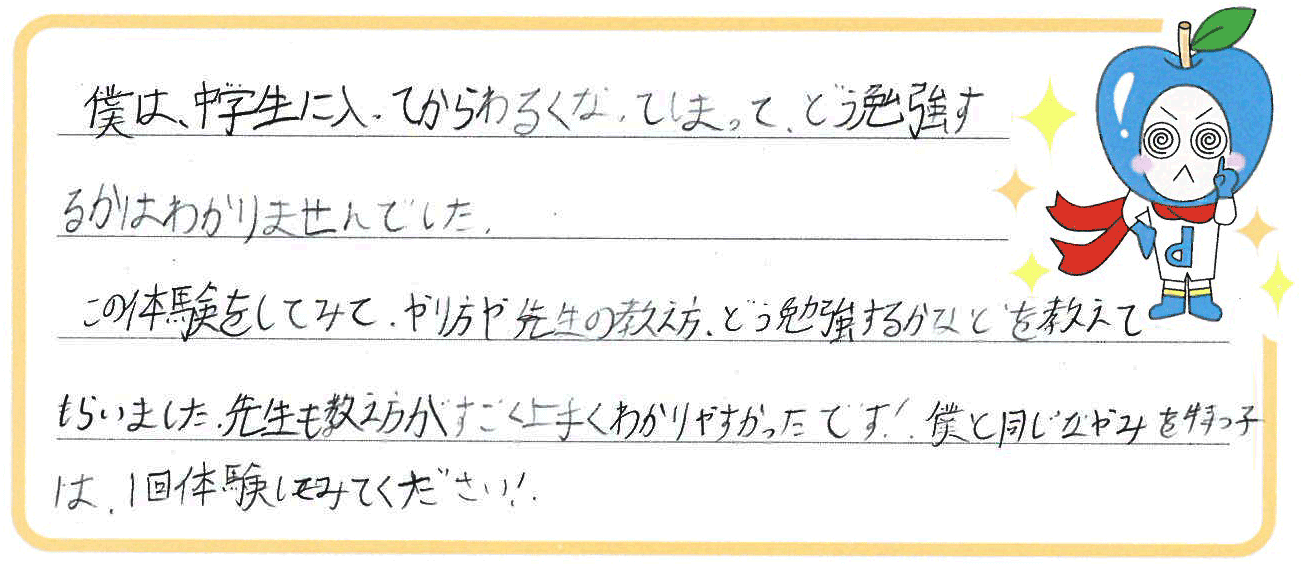 僕は、中学生に入ってからわるくなってしまって、どう勉強す
るかはわかりませんでした。
この体験をしてみて、やり方や先生の教え方、どう勉強するかなどを教えて
もらいました。先生も教え方がすごく上手くわかりやすかったです！僕と同じなやみを持つ子
は、1回体験してみてください！
d